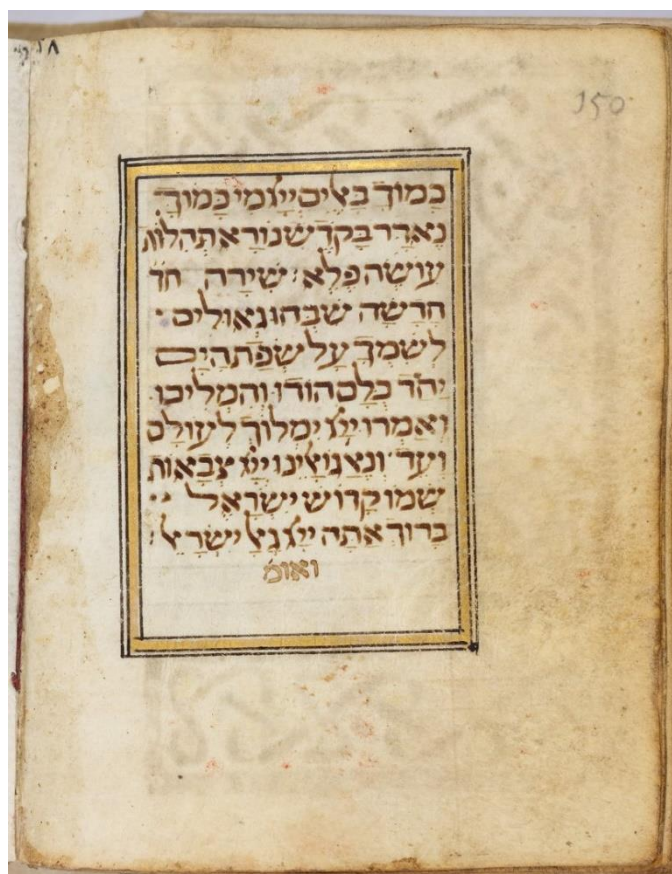 150
כָמוֹךָ בָּאֵלִים יְיָ מִי כָּמוֹךָ
נֶאְדָּר בַּקֹּדֶשׁ נוֹרָא תְהִלּוֹת
עוֹשֵׂה פֶלֶא׃ שִׁירָה חד
חֲדָשָׁה שִׁבְּחוּ גְאוּלִים
לְשִׁמְךָ עַל שְׂפַת הַיָּם
יַחַד כֻּלָּם הוֹדוּ וְהִמְלִיכוּ
וְאָמְרוּ יְיָ יִמְלוֹךְ לְעוֹלָם
וָעֶד וְנֶאֱ גּוֹאֲלֵינוּ יְיָ צְבָאוֹת
שְׁמוֹ קְדוֹשׁ יִשְׂרָאֵל
בָּרוּךְ אַתָּה יְיָ גָּאַל יִשְׂרָאֵל׃
ואומ